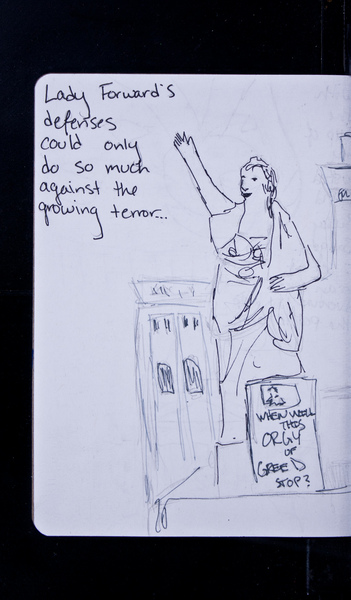 Lady Forward's
defenses
could only
do so much
against the
growing terror...
WHEN WILL
THIS
ORGY
OF
GREED
STOP?